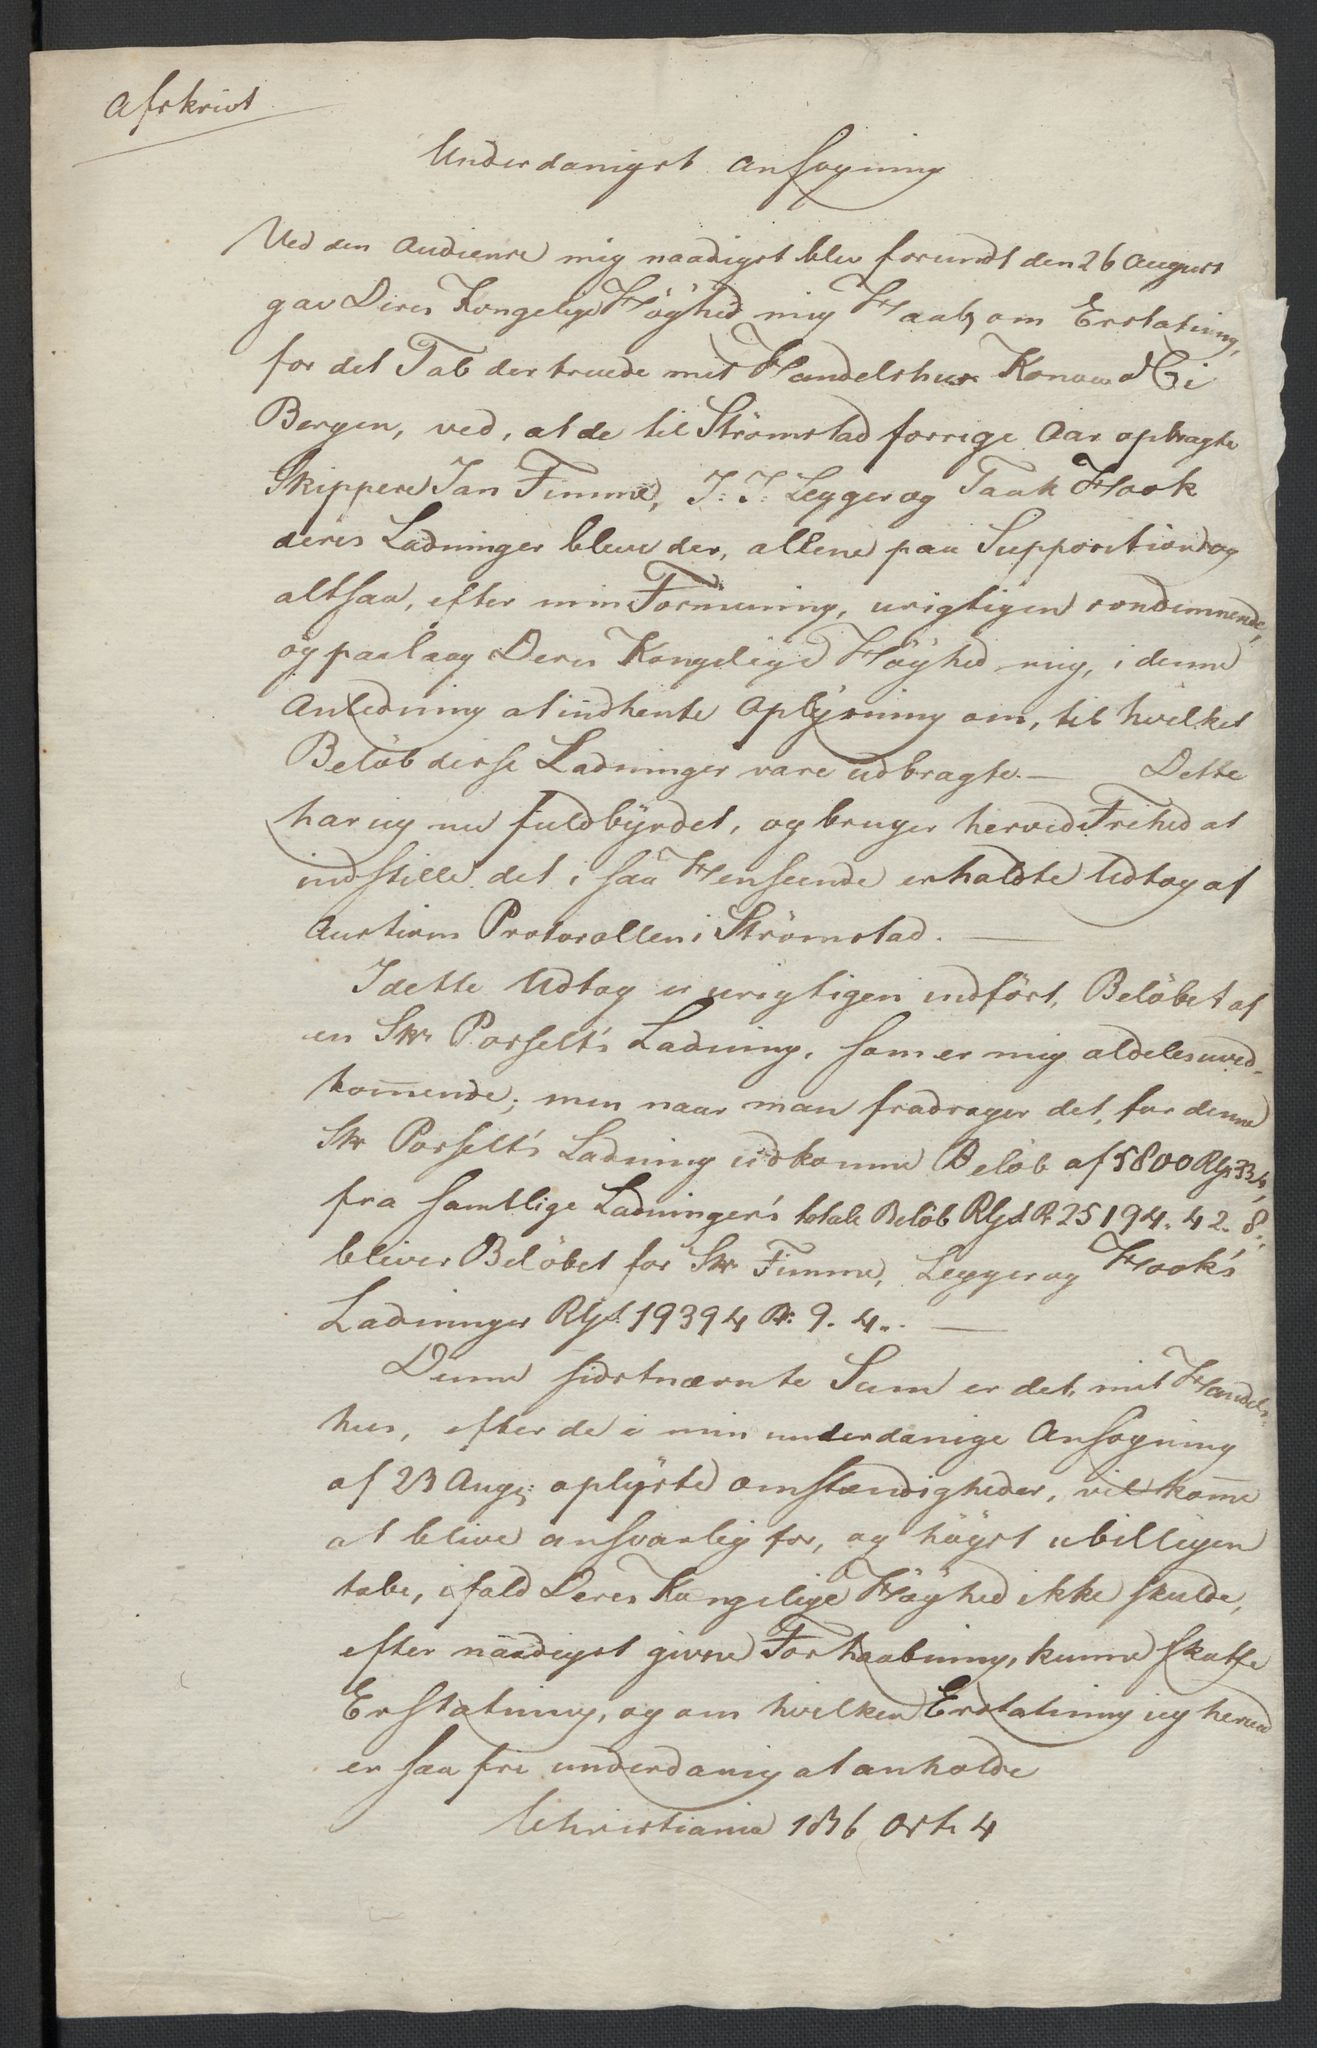 Afskrivt
Underdanigst Ansøgning
Ved den Audience mig naadigst blev forundt den 26 August
gav Deres Kongelige Höghed mig Haab om Erstatning,
for det Tab der truede mit Handelshus Konow & Co i
Bergen, ved, at de til Strömstad forrige Aar opbragte
Skippere Jan Fimme, J: J: Legger og Taak Hook
deres Ladninger bleve der, allene paa Supposition og
altsaa, efter min Formening, urigtigen condemnerede,
og paalaag Deres Kongelige Höghed mig, i denne
Anledning at indhente Oplysning om, til hvilket
Belöb disse Ladninger vare udbragte. — Dette
har ieg nu fuldbÿrdet, og bruger herved Frihed at
indstille det i saa Henseende erholdte Udtog af
Auctions Protocollen i Strömstad. —
I dette Udtog er urigtigen indfört, Belöbet af
en Skr Posselt's Ladning, som er mig aldeles uved-
kom̄ende; men naar man fradrager det, for denne
Skr Posselt's Ladning udkomne Belöb af 5800 Rgs 33 4,
fra samtlige Ladninger's totale Belöb Rgsd Rr 25194. 42. 8.
bliver Belöbet for Skr Fimme, Legger og Hook's
Ladninger Rgsd 19394 Rr. 9. 4.. —
Denne sidstnævnte Sum er det, mit Handels-
hus, efter de i min underdanige Ansøgning
af 23 Aug: oplÿste Omstændigheder, vil kom̄e
at blive ansvarlig for, og högst ubilligen
tabe, ifald Deres Kongelige Höghed ikke skulde,
efter naadigst givne Forhaabning, kunne skaffe
Erstatning, og om hvilken Erstatning ieg herved
er saa fri underdanig at anholde
Christiania 1816 Oct. 4